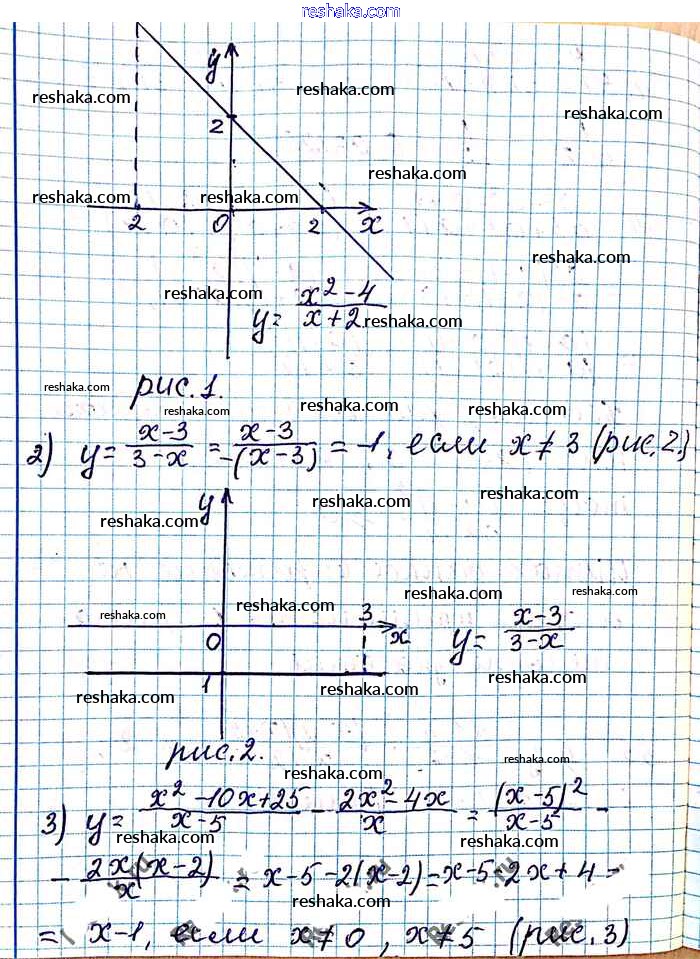 reshaka.com
y
reshaka.com
reshaka.com
reshaka.com
2
reshaka.com
reshaka.com
reshaka.com
2 0 2 x
reshaka.com
reshaka.com
y = (x² - 4)/(x + 2)
reshaka.com
reshaka.com
рис. 1.
reshaka.com
reshaka.com
2) y = (x-3)/(3-x) = (x-3)/(-(x-3)) = -1, если x ≠ 3 (рис. 2.)
reshaka.com
reshaka.com
y
reshaka.com
reshaka.com
reshaka.com
reshaka.com
reshaka.com
reshaka.com
3
0 x
y = (x-3)/(3-x)
reshaka.com
1
reshaka.com
reshaka.com
рис. 2.
reshaka.com
reshaka.com
3) y = (x² - 10x + 25)/(x-5) - (2x² - 4x)/x = (x-5)²/(x-5) -
reshaka.com
reshaka.com
- 2x(x-2)/x = x-5-2(x-2) = x-5-2x+4 =
reshaka.com
= x-1, если x ≠ 0, x ≠ 5 (рис. 3)